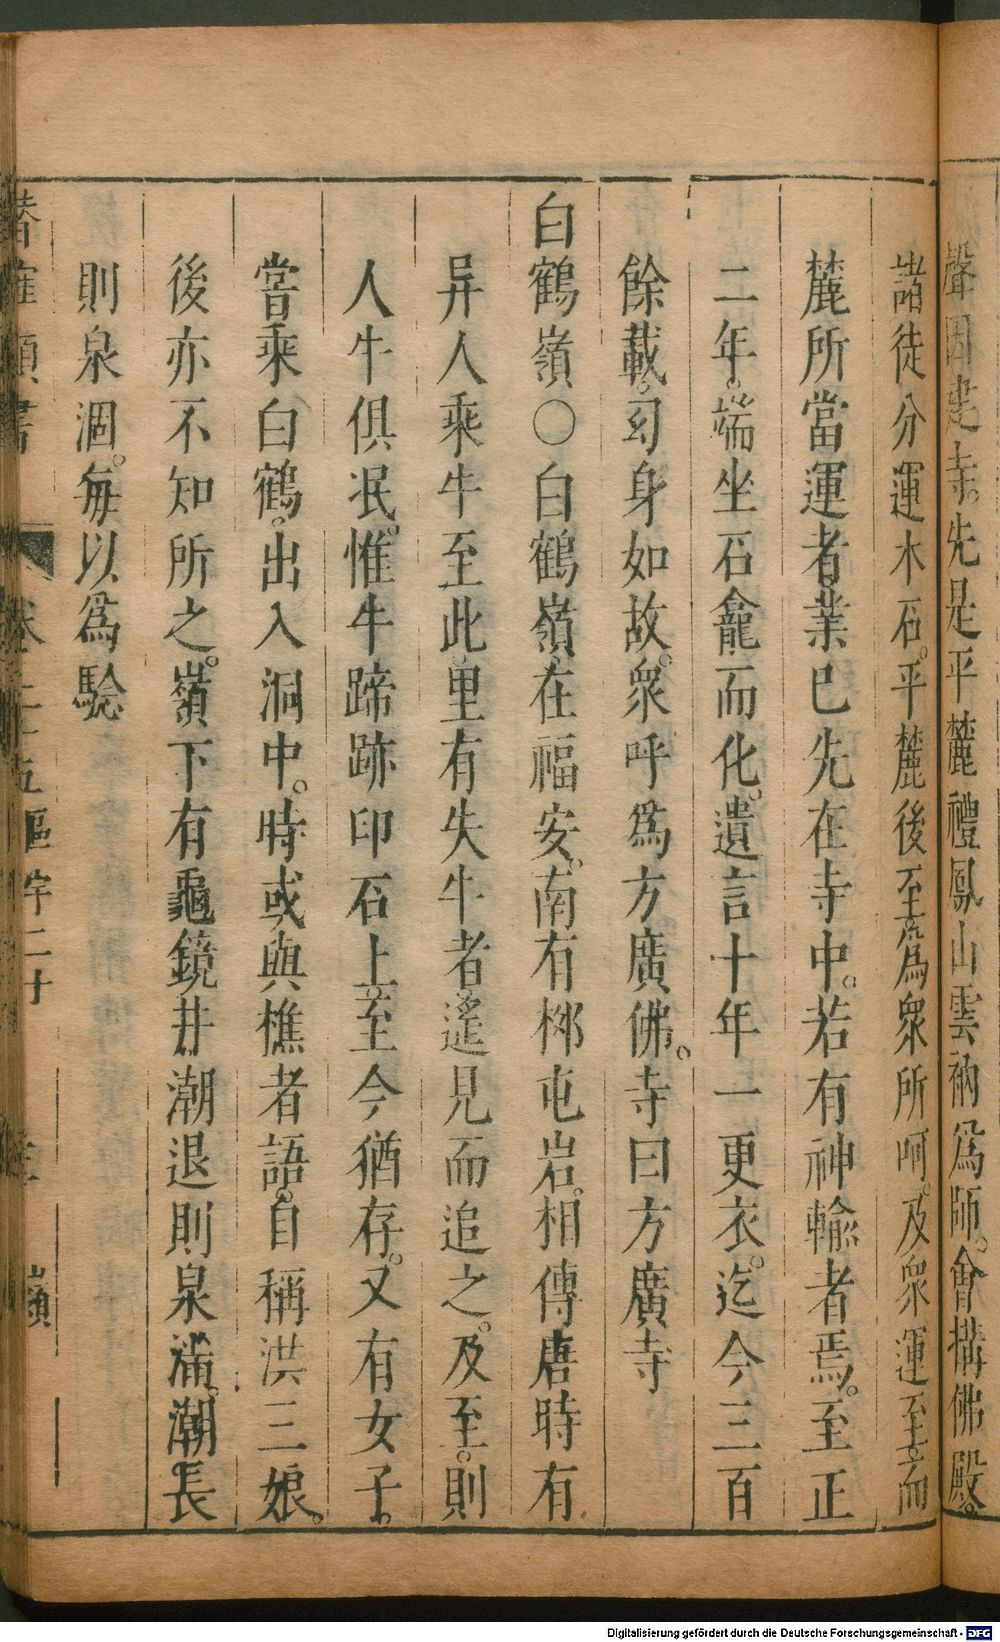 聲因建寺。先是平麓禮鳳山雲衲爲師。會搆佛殿。
諸徒分運木石。平麓後至爲衆所呵。及衆運至而
麓所當運者業已先在寺中。若有神輸者焉。至正
二年。端坐石龕而化。遺言十年一更衣。迄今三百
餘載。幻身如故。衆呼爲方廣佛。寺曰方廣寺
白鶴嶺〇白鶴嶺在福安。南有梛屯岩。相傳唐時有
异人乘牛至此。里有失牛者遙見而追之。及至。則
人牛俱泯。惟牛蹄跡印石上。至今猶存。又有女子。
嘗乘白鶴。出入洞中。時或與樵者語。自稱洪三娘。
後亦不知所之。嶺下有龜鏡井潮退則泉滿。潮長
則泉涸。每以爲騐
潛確類書 卷二十五 區宇二十 嶺
Digitalisierung gefördert durch die Deutsche Forschungsgemeinschaft - DFG